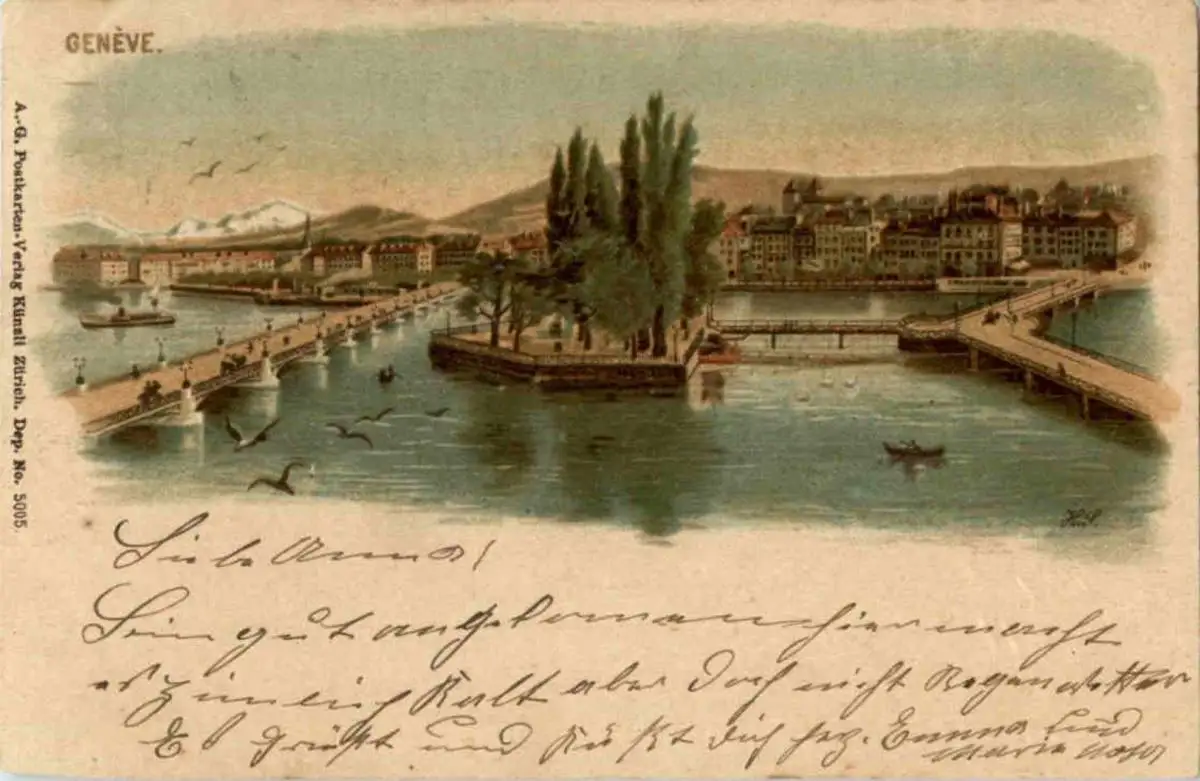 GENÈVE.
A.-G. Postkarten-Verlag Künzli Zürich. Dep. No. 5005.
Liebe Anna!
Sein gut angekoman hier macht
es zimlich Kalt aber doch nicht Regenwetter
Es grüßt und Küßt dich herz. Emma und
Maria